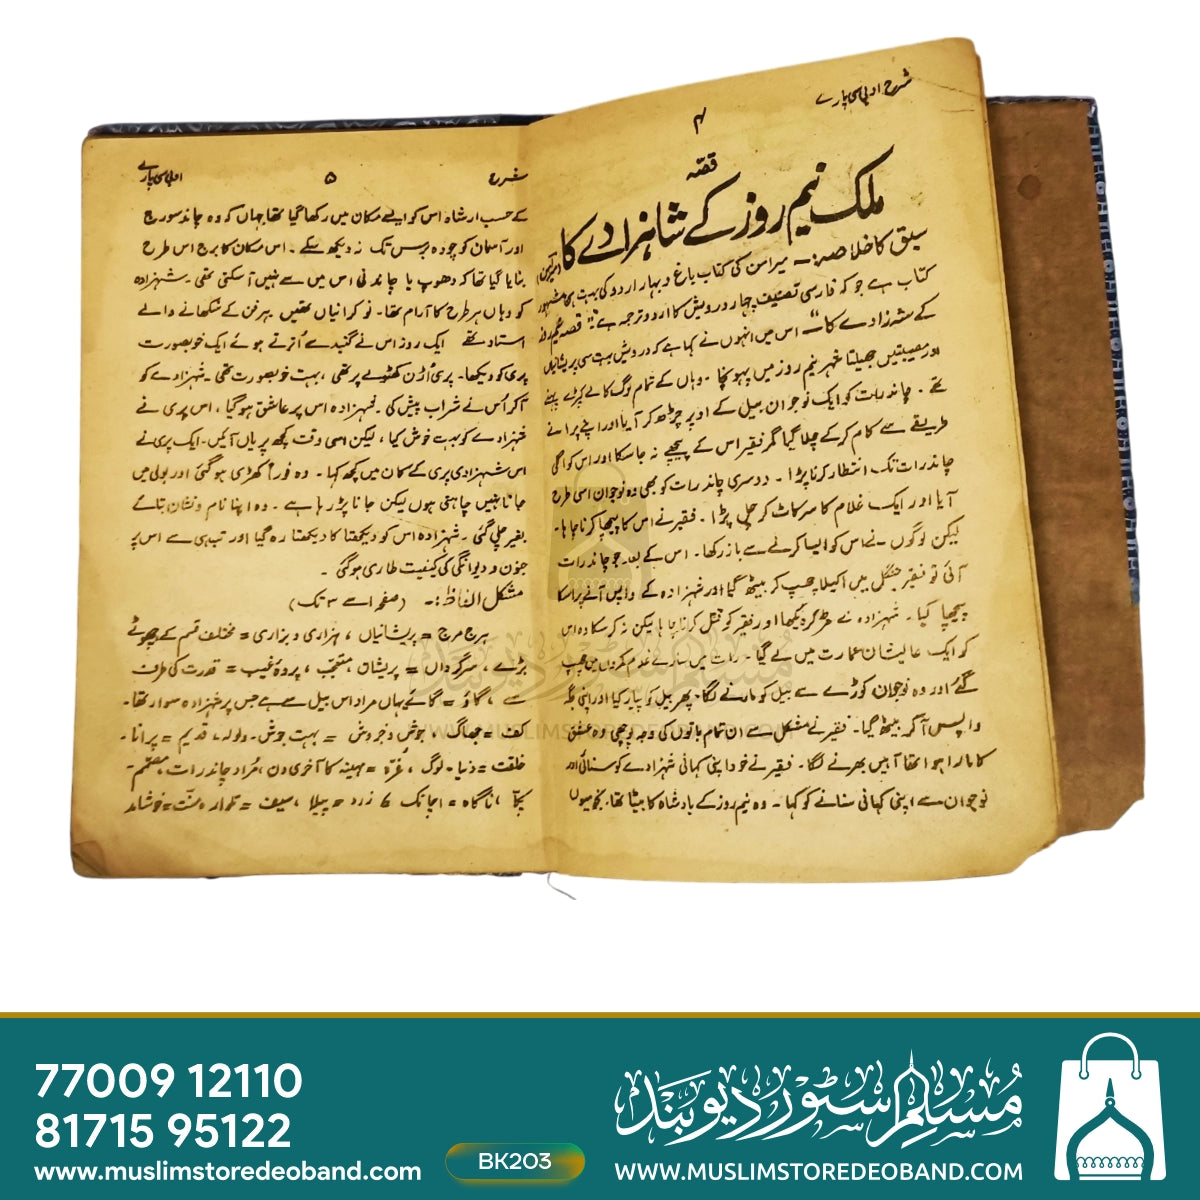 شرح ادبی سی پارے
۴
قصہ
ملک نیم روز کے شاہزادے کا
سبق کا خلاصہ:۔ میر امن کی کتاب باغ و بہار اردو کی بہت ہی مشہور
کتاب ہے جو کہ فارسی تصنیف چہار درویش کا اردو ترجمہ ہے "قصہ نیم روز
کے شہزادے کا" اس میں انہوں نے کہا ہے کہ درویش بہت سی پریشانیاں
اور مصیبتیں جھیلتا شہر نیم روز میں پہونچا ۔ وہاں کے تمام لوگ کالے کپڑے پہنے
تھے ۔ چاند رات کو ایک نوجوان بیل کے اوپر چڑھ کر آیا اور اپنے پرانے
طریقے سے کام کر کے چلا گیا مگر فقیر اس کے پیچھے نہ جا سکا اور اس کو اگلی
چاند رات تک انتظار کرنا پڑا ۔ دوسری چاند رات کو بھی وہ نوجوان اسی طرح
آیا اور ایک غلام کا سر کاٹ کر چل پڑا ۔ فقیر نے اس کا پیچھا کرنا چاہا ۔
لیکن لوگوں نے اس کو ایسا کرنے سے باز رکھا ۔ اس کے بعد جو چاند رات
آئی تو فقیر جنگل میں اکیلا چھپ کر بیٹھ گیا اور شہزادہ کے واپس آنے پر اسکا
پیچھا کیا ۔ شہزادہ نے مڑ کر دیکھا اور فقیر کو قتل کرنا چاہا لیکن نہ کر سکا وہ اس
کو ایک عالیشان عمارت میں لے گیا ۔ رات میں سارے غلام کمروں میں چھپ
گئے اور وہ نوجوان کوڑے سے بیل کو مارنے لگا ۔ پھر بیل کو پیار کیا اور اپنی جگہ
واپس آکر بیٹھ گیا ۔ فقیر نے مشکل سے ان تمام باتوں کی وجہ پوچھی وہ عشق
کا مارا ہوا تھا آہیں بھرنے لگا ۔ فقیر نے خود اپنی کہانی شہزادے کو سنائی اور
نوجوان سے اپنی کہانی سنانے کو کہا ۔ وہ نیم روز کے بادشاہ کا بیٹا تھا ۔ نجومیوں
شرح ۵ ادبی سی پارے
کے حسب ارشاد اس کو ایسے مکان میں رکھا گیا تھا جہاں کہ وہ چاند سورج
اور آسمان کو چودہ برس تک نہ دیکھ سکے ۔ اس مکان کا برج اس طرح
بنایا گیا تھا کہ دھوپ یا چاندنی اس میں سے نہیں آسکتی تھی ۔ شہزادہ
کو وہاں ہر طرح کا آرام تھا ۔ نوکرانیاں تھیں ہر فن کے سکھانے والے
استاد تھے ایک روز اس نے گنبد سے اُترتے ہوئے ایک خوبصورت
پری کو دیکھا ۔ پری اُڑن کھٹولے پر تھی ، بہت خوبصورت تھی ۔ شہزادے کو
آکر اُس نے شراب پیش کی ۔ شہزادہ اس پر عاشق ہو گیا ، اس پری نے
شہزادے کو بہت خوش کیا ، لیکن اسی وقت کچھ پریاں آئیں ۔ ایک پری نے
اس شہزادی پری کے کان میں کچھ کہا ۔ وہ فوراً کھڑی ہو گئی اور بولی میں
جانا نہیں چاہتی ہوں لیکن جانا پڑ رہا ہے ۔ وہ اپنا نام و نشان بتائے
بغیر چلی گئی ۔ شہزادہ اس کو دیکھتا کا دیکھتا رہ گیا اور تب ہی سے اس پر
جنون و دیوانگی کی کیفیت طاری ہو گئی ۔
مشکل الفاظ :۔ (صفحہ ا سے ۳ تک)
ہرج مرج = پریشانیاں ، ہزاری و بزاری = مختلف قسم کے چھوٹے
بڑے ، سرگرداں = پریشان متعجب ، پردۂ غیب = قدرت کی طرف
سے ، گاؤ = گائے یہاں مراد اس بیل سے ہے جس پر شہزادہ سوار تھا ۔
کف = جھاگ ، جوش و خروش = بہت جوش ۔ ولولہ ، قدیم = پرانا ۔
خلقت = دنیا ۔ لوگ ، غرّہ = مہینہ کا آخری دن ، مراد چاند رات ، مصمّم =
پکّا ، ناگاہ = اچانک ، زرد = پیلا ، سیف = تلوار ، منّت = خوشامد
مسلم سٹور دیوبند
WWW.MUSLIMSTOREDEOBAND.COM
77009 12110
81715 95122
www.muslimstoredeoband.com
BK203
مُسلِم سٹور دیوبَند
WWW.MUSLIMSTOREDEOBAND.COM